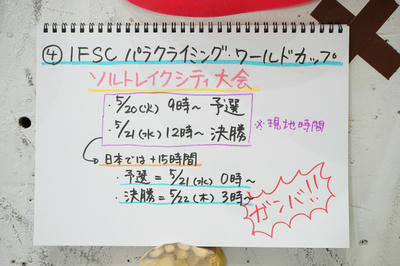 ④ IFSC パラクライミング・ワールドカップ
ソルトレイクシティ大会
・5/20(火) 9時〜 予選
・5/21(水) 12時〜 決勝
※現地時間
→日本では+15時間
・予選=5/21(水) 0時〜
・決勝=5/22(木) 3時〜
ガンバ!!